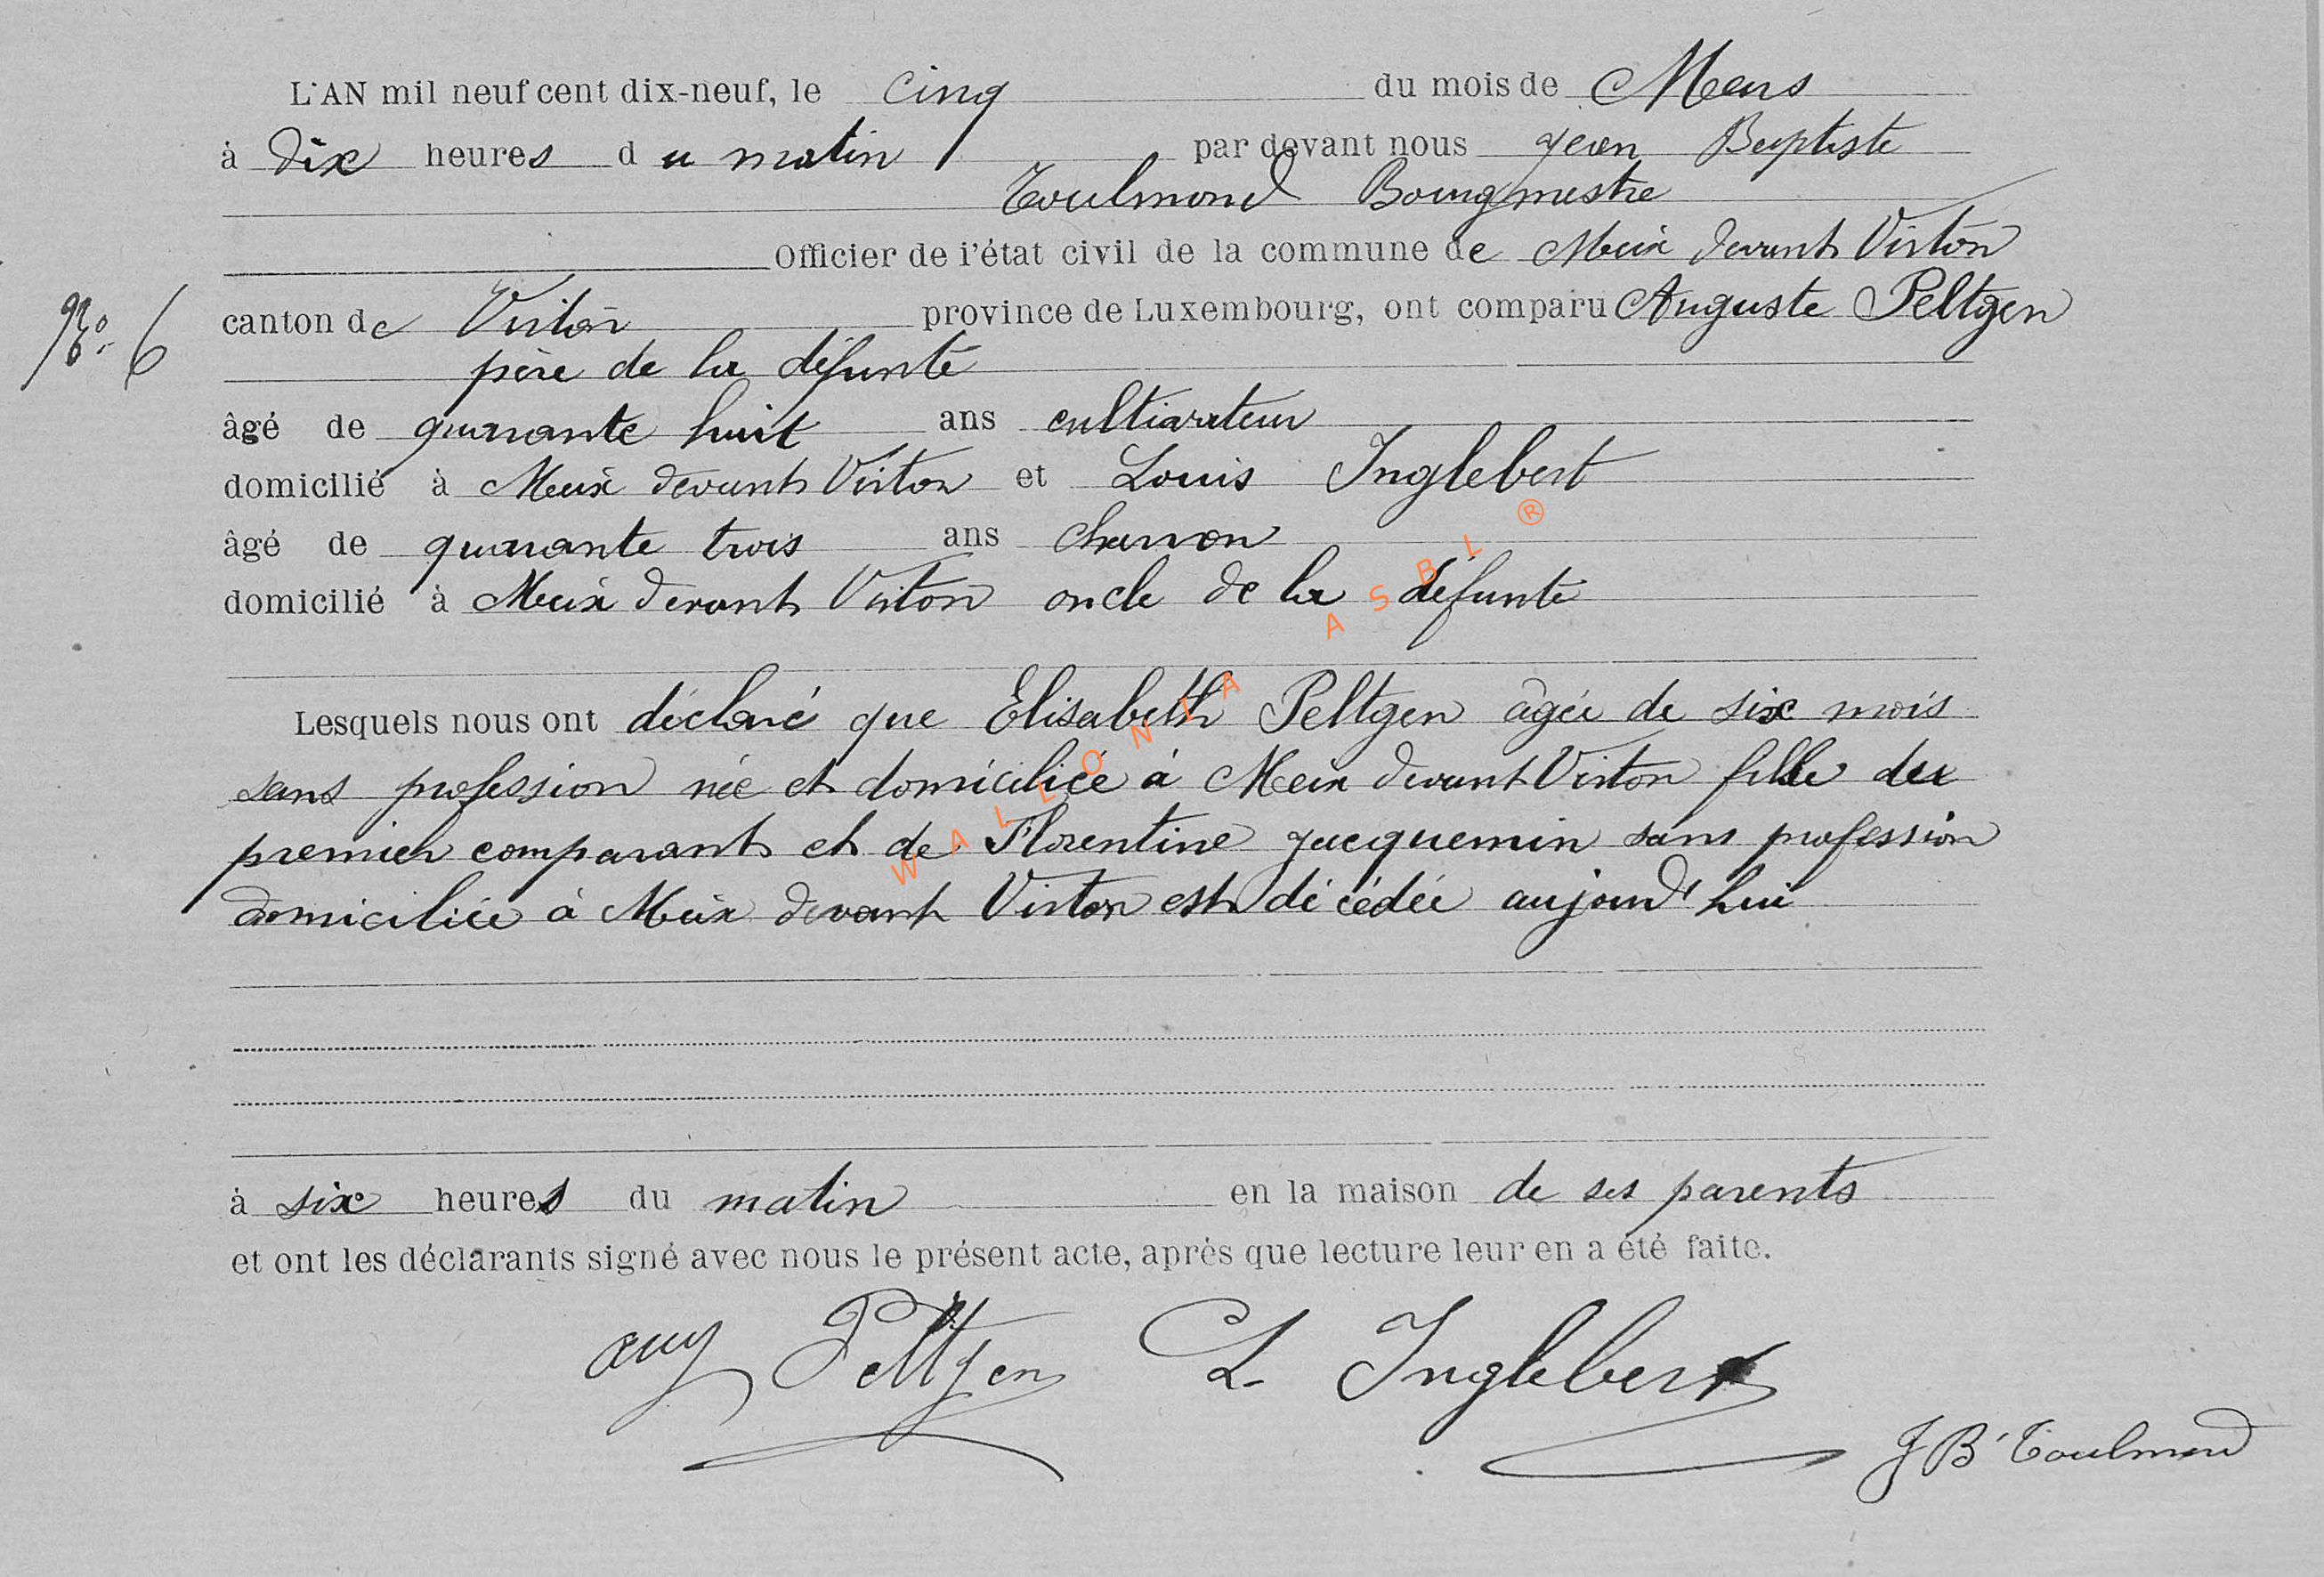 L'AN mil neuf cent dix-neuf, le cinq du mois de Mars
à dix heures du matin par devant nous Jean Baptiste
Toulmond Bourgmestre
Officier de l'état civil de la commune de Meix devant Virton
N° 6
canton de Virton province de Luxembourg, ont comparu Auguste Peltgen
père de la défunte
âgé de quarante huit ans cultivateur
domicilié à Meix devant Virton et Louis Inglebert
âgé de quarante trois ans charron
domicilié à Meix devant Virton oncle de la défunte
Lesquels nous ont déclaré que Elisabeth Peltgen âgée de six mois
sans profession née et domiciliée à Meix devant Virton fille du
premier comparant et de Florentine Jacquemin sans profession
domiciliée à Meix devant Virton est décédée aujourd'hui
à six heures du matin en la maison de ses parents
et ont les déclarants signé avec nous le présent acte, après que lecture leur en a été faite.
Aug Peltgen L. Inglebert
JB Toulmond
WALLONIA ASBL ®